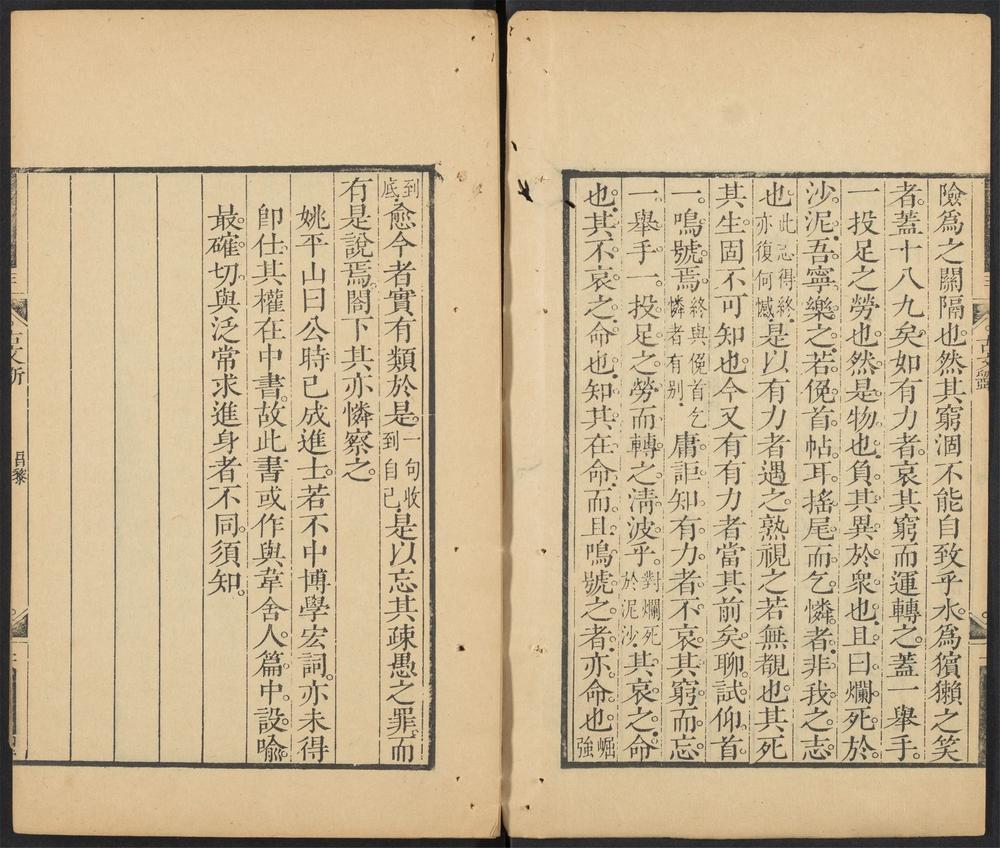 險爲之關隔也然其窮涸不能自致乎水爲獱獺之笑
者蓋十八九矣如有力者哀其窮而運轉之蓋一舉手
一投足之勞也然是物也負其異於衆也且曰爛死於
沙泥吾寧樂之若俛首帖耳搖尾而乞憐者非我之志
也此志得終亦復何憾是以有力者遇之熟視之若無覩也其死
其生固不可知也今又有有力者當其前矣聊試仰首
一鳴號焉終與俛首乞憐者有別庸詎知有力者不哀其窮而忘
一舉手一投足之勞而轉之淸波乎對爛死於泥沙其哀之命
也其不哀之命也知其在命而且鳴號之者亦命也崛強
到底愈今者實有類於是一句收到自己是以忘其疎愚之罪而
有是說焉閤下其亦憐察之
姚平山曰公時已成進士若不中博學宏詞亦未得
卽仕其權在中書故此書或作與韋舍人篇中設喩
最確切與泛常求進身者不同須知
昌黎